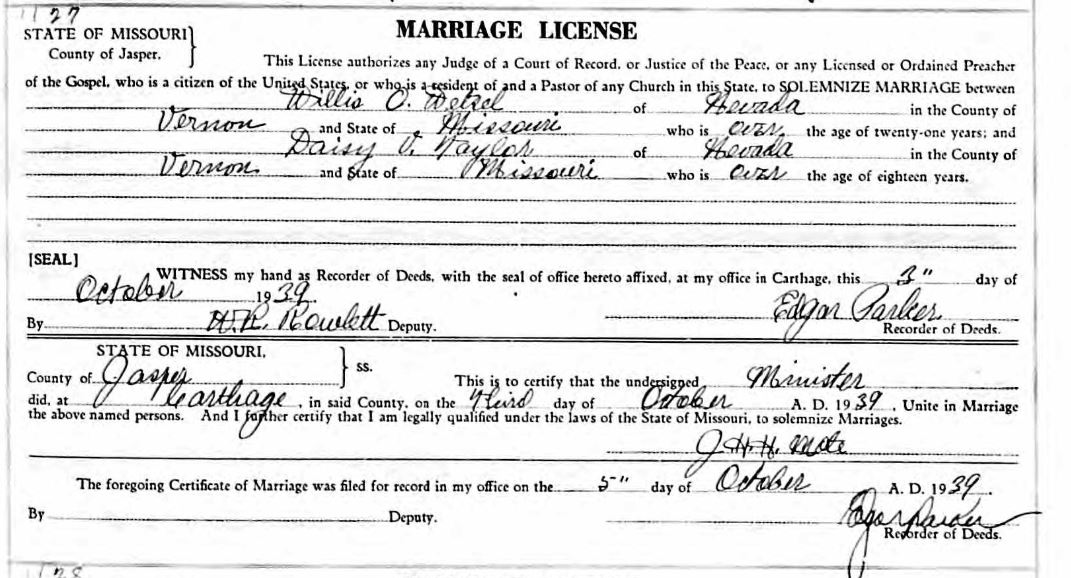 1127
STATE OF MISSOURI
County of Jasper.
MARRIAGE LICENSE
This License authorizes any Judge of a Court of Record, or Justice of the Peace, or any Licensed or Ordained Preacher
of the Gospel, who is a citizen of the United States, or who is a resident of and a Pastor of any Church in this State, to SOLEMNIZE MARRIAGE between
Willis O. Wetzel of Nevada in the County of
Vernon and State of Missouri who is over the age of twenty-one years; and
Daisy V. Naylor of Nevada in the County of
Vernon and State of Missouri who is over the age of eighteen years.
[SEAL]
WITNESS my hand as Recorder of Deeds, with the seal of office hereto affixed, at my office in Carthage, this 3" day of
October 1939. Edgar Parker
By H.R. Rowlett Deputy. Recorder of Deeds.
STATE OF MISSOURI,
County of Jasper ss. This is to certify that the undersigned Minister
did, at Carthage, in said County, on the Third day of October A. D. 1939, Unite in Marriage
the above named persons. And I further certify that I am legally qualified under the laws of the State of Missouri, to solemnize Marriages.
J. H. H. Mote
The foregoing Certificate of Marriage was filed for record in my office on the 5" day of October A. D. 1939.
By Deputy. Edgar Parker
Recorder of Deeds.
1128